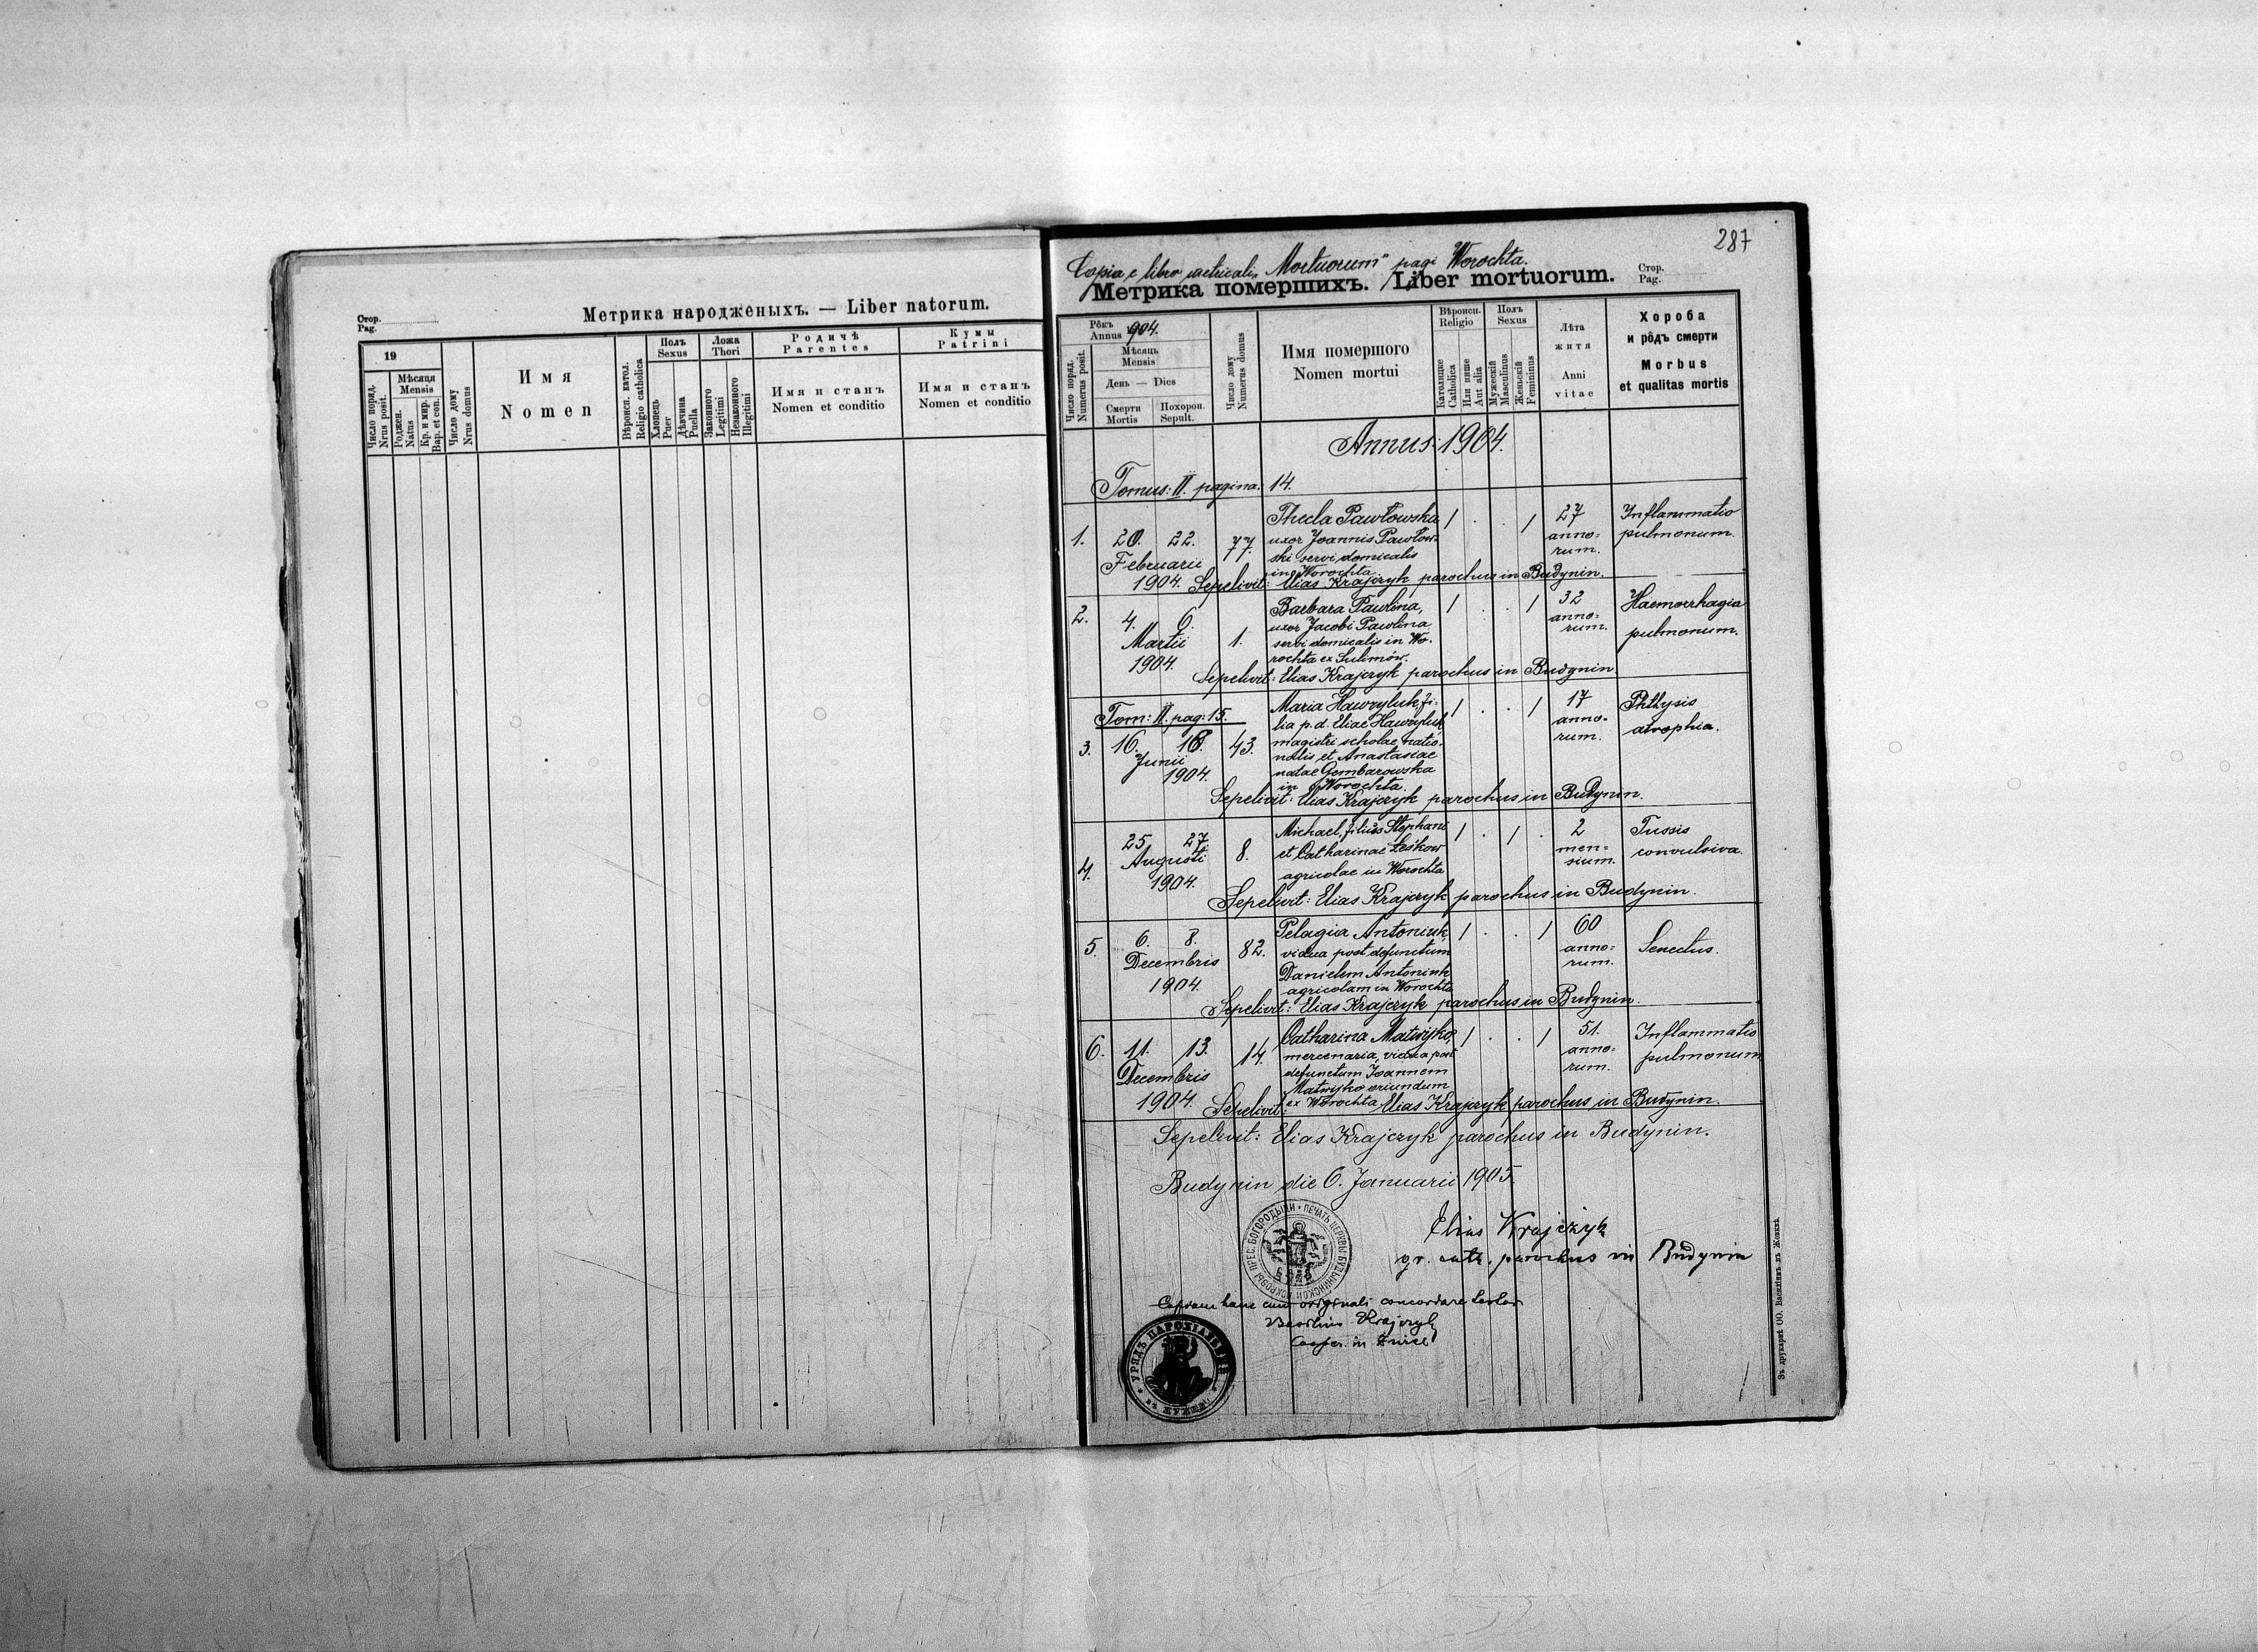 Стор.
Pag.
Метрика народженыхъ. — Liber natorum.
19
Мѣсяця
Mensis
Число поряд.
Nrus posit.
Роджен.
Natus
Кр. и мир.
Bap. et con.
Число дому
Nrus domus
Имя
Nomen
Вѣроисп. катол.
Religio catholica
Полъ
Sexus
Хлопець
Puer
Дѣвчина
Puella
Ложа
Thori
Законного
Legitimi
Незаконного
Illegitimi
Родичѣ
Parentes
Имя и станъ
Nomen et conditio
Кумы
Patrini
Имя и станъ
Nomen et conditio
287
Copia e libro metricali „Mortuorum" pagi Worochta.
Метрика помершихъ. Liber mortuorum.
Стор.
Pag.
Рôкъ
Annus 904.
Число поряд.
Numerus posit.
Мѣсяць
Mensis
День — Dies
Смерти
Mortis
Похорон.
Sepult.
Число дому
Numerus domus
Имя помершого
Nomen mortui
Вѣроисп.
Religio
Католицке
Catholica
Или инше
Aut alia
Полъ
Sexus
Мужескій
Masculinus
Женьскій
Femininus
Лѣта
житя
Anni
vitae
Хороба
и рôдъ смерти
Morbus
et qualitas mortis
Annus: 1904.
Tomus: II. pagina: 14.
1. 20. 22. Februarii 1904. 77.
Thecla Pawłowska
uxor Joannis Pawłow-
ski servi domicalis
in Worochta.
1 . . 1
27
anno=
rum.
Inflammatio
pulmonum.
Sepelivit: Elias Krajczyk parochus in Budynin.
2. 4. 6. Martii 1904. 1.
Barbara Pawlina,
uxor Jacobi Pawlina
servi domicalis in Wo-
rochta ex Sulimów.
1 . . 1
32
anno=
rum.
Haemorrhagia
pulmonum.
Sepelivit: Elias Krajczyk parochus in Budynin
Tom: II. pag: 15.
3. 16. 18. Junii 1904. 43.
Maria Hawryluk, fi-
lia p. d. Eliae Hawryluk,
magistri scholae natio-
nalis et Anastasiae
natae Gembarowska
in Worochta.
1 . . 1
17
anno-
rum.
Phthysis
atrophia.
Sepelivit: Elias Krajczyk parochus in Budynin.
4. 25. 27. Augusti 1904. 8.
Michael, filius Stephani
et Catharinae Leśkow
agricolae in Worochta
1 . 1 .
2
men=
sium.
Tussis
convulsiva.
Sepelivit: Elias Krajczyk parochus in Budynin.
5. 6. 8. Decembris 1904. 82.
Pelagia Antoniuk,
vidua post defunctum
Danielem Antoniuk
agricolam in Worochta
1 . . 1
60
anno=
rum.
Senectus.
Sepelivit: Elias Krajczyk parochus in Budynin.
6. 11. 13. Decembris 1904. 14.
Catharina Matwijko,
mercenaria, vidua post
defunctum Joannem
Matwijko oriundum
ex Worochta
1 . . 1
51.
anno=
rum.
Inflammatio
pulmonum
Sepelivit: Elias Krajczyk parochus in Budynin.
Sepelivit: Elias Krajczyk parochus in Budynin.
Budynin die 6. Januarii 1905.
Elias Krajczyk
gr. cath. parochus in Budynin
ПЕЧАТЬ ЦЕРКВЫ БУДЫНИНСКОЙ ПОКРОВЫ ПРЕС. БОГОРОДЫЦИ
Copiam hanc cum originali concordare testor
Basilius Krajczyk
Cooper. in
УРЯДЪ ПАРОХІАЛЬНЫЙ
Зъ друкарнѣ ОО. Василіянъ въ Жовквѣ